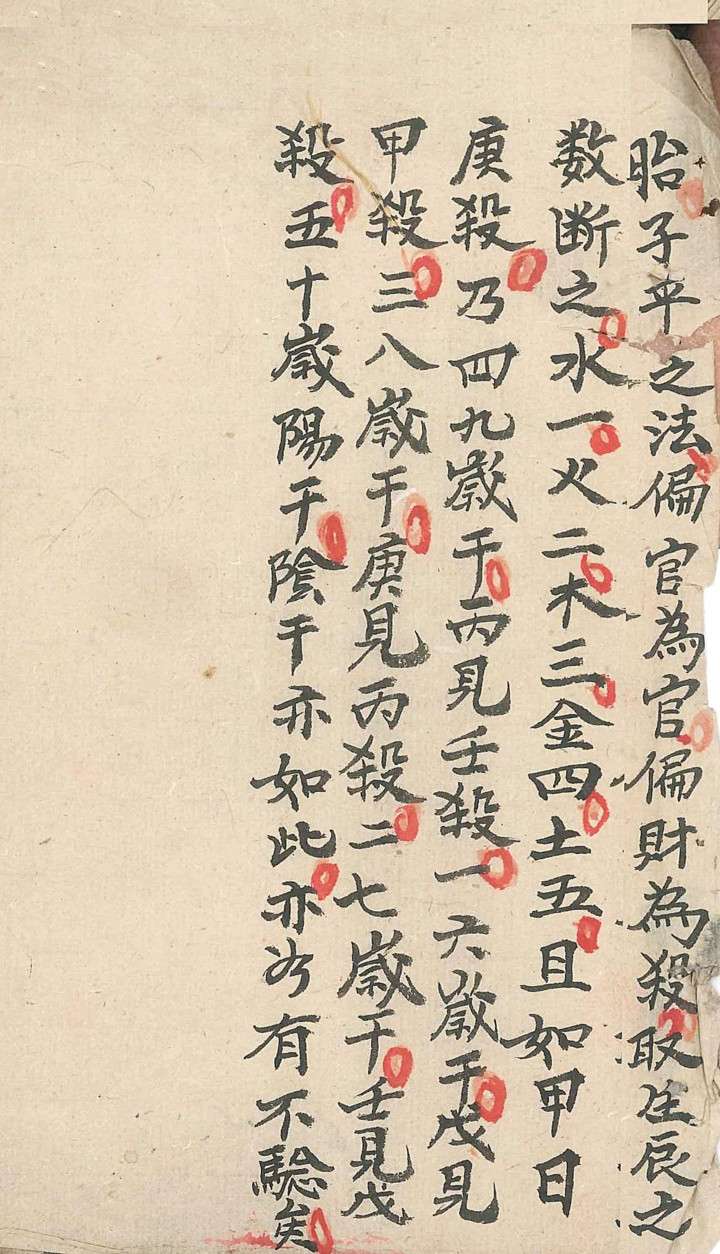 昭子平之法偏官為官偏財為殺取生辰之
数断之水一火二木三金四土五且如甲日
庚殺乃四九歲干丙見壬殺一六歲干戊見
甲殺三八歲干庚見丙殺二七歲干壬見戊
殺五十歲陽干陰干亦如此亦有不驗矣